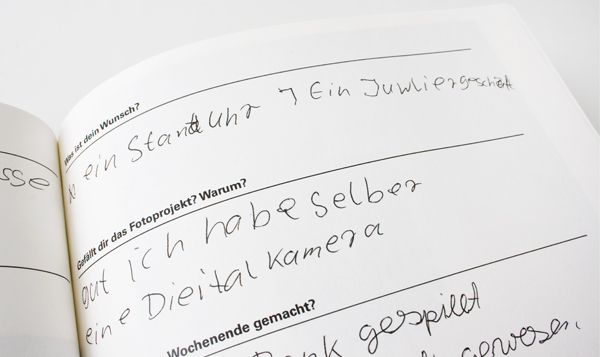 sse
Was ist dein Wunsch?
ein Standuhr → Ein Juwliergeschäft
Gefällt dir das Fotoprojekt? Warum?
gut ich habe selber
eine Dieitalkamera
Wochenende gemacht?
gespillt
gewesen.